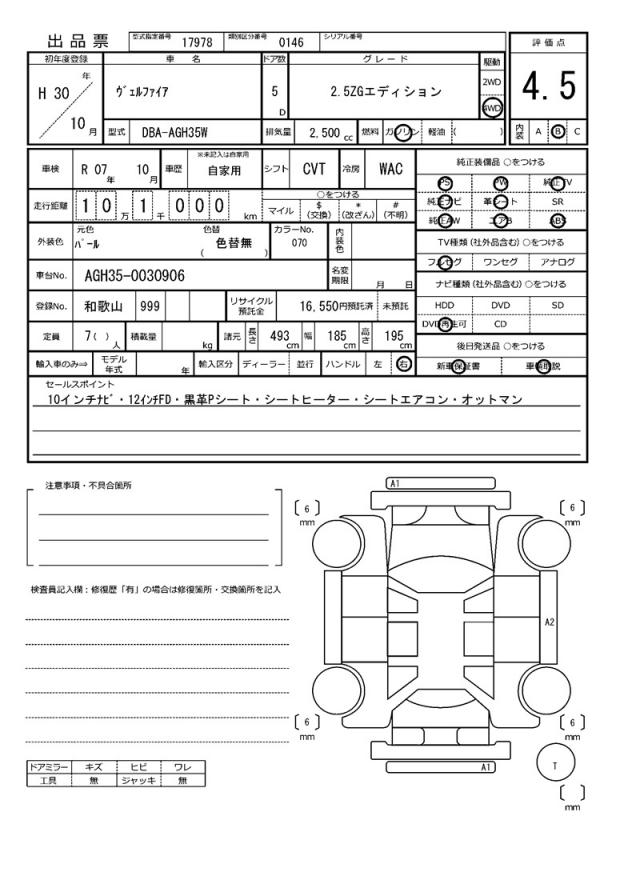 出品票 型式指定番号 17978 類別区分番号 0146 シリアル番号
評価点
4.5
内装 A B C
初年度登録 車名 ドア数 グレード 駆動
H 30 年 10 月
ヴェルファイア 5 D 2.5ZGエディション 2WD 4WD
型式 DBA-AGH35W 排気量 2,500 cc 燃料 ガソリン 軽油 ( )
車検 R 07 年 10 月 車歴 ※未記入は自家用 自家用 シフト CVT 冷房 WAC
走行距離 1 0 万 1 千 0 0 0 km ○をつける
マイル $ (交換) * (改ざん) # (不明)
外装色 元色 パール 色替 色替無 ( ) カラーNo. 070 内装色
車台No. AGH35-0030906 名変期限 月 日
登録No. 和歌山 999 リサイクル預託金 16,550円預託済 未預託
定員 7( ) 人 積載量 kg 諸元 長さ 493 cm 幅 185 cm 高さ 195 cm
輸入車のみ⇒ モデル年式 年 輸入区分 ディーラー 並行 ハンドル 左 右
純正装備品 ○をつける
PS PW 純正TV
純正ナビ 革シート SR
純正AW エアB ABS
TV種類 (社外品含む) ○をつける
フルセグ ワンセグ アナログ
ナビ種類 (社外品含む) ○をつける
HDD DVD SD
DVD再生可 CD
後日発送品 ○をつける
新車保証書 車輌取説
セールスポイント
10インチナビ・12インチFD・黒革Pシート・シートヒーター・シートエアコン・オットマン
注意事項・不具合箇所
検査員記入欄：修復歴「有」の場合は修復箇所・交換箇所を記入
ドアミラー キズ ヒビ ワレ
工具 無 ジャッキ 無
A1
6 mm
6 mm
A2
6 mm
6 mm
A1
T
mm